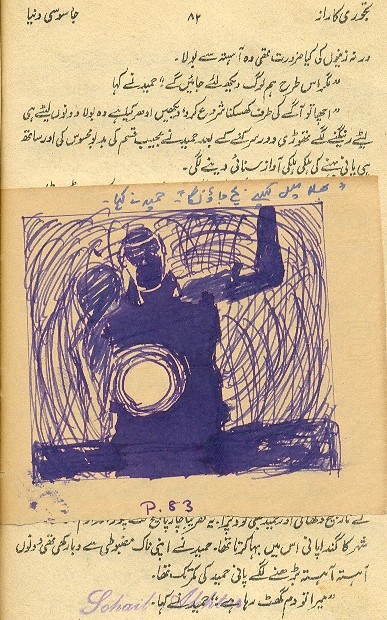 تجوری کا راز ۸۲ جاسوسی دنیا
ورنہ کی کیا ضرورت تھی وہ آہستہ سے بولا۔
"مگر اس طرح ہم لوگ دیکھ لئے جائیں گے" حمید نے کہا
"اچھا تو آگے کی طرف کھسکنا شروع کرو، دیکھیں ادھر کیا ہے وہ بولا دونوں لیٹے ہی
لیٹے رینگنے لگے تھوڑی دور سرکنے کے بعد حمید نے عجیب قسم کی بدبو محسوس کی اور ساتھ
ہی پانی بہنے کی ہلکی ہلکی آواز سنائی دینے لگی۔
حمید نے کہا۔
P.83
شہر کا گندا پانی اس میں بہا کرتا تھا۔ حمید نے اپنی ناک مضبوطی سے دبا رکھی تھی دونوں
آہستہ آہستہ بڑھنے لگے پانی حمید کی کمر تک تھا۔
"میرا تو دم گھٹ رہا ہے" حمید نے کہا۔
Sohail